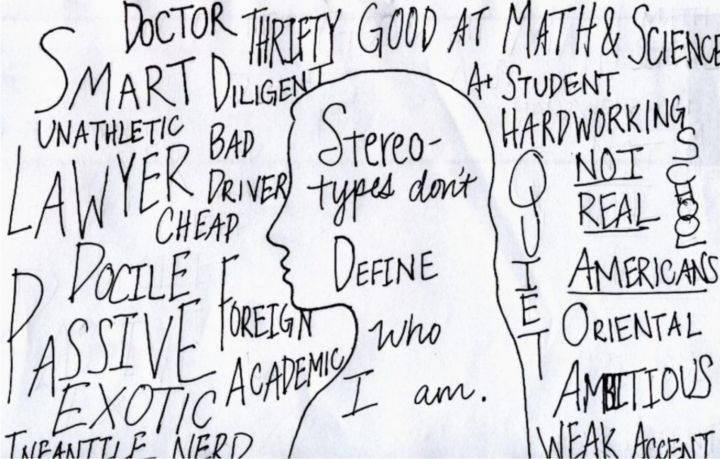 DOCTOR
THRIFTY
GOOD AT MATH & SCIENCE
SMART
DILIGENT
A+ STUDENT
UNATHLETIC
BAD
DRIVER
HARDWORKING
LAWYER
CHEAP
Stereo-
types don't
DEFINE
who
I am.
QUIET
NOT
REAL
AMERICANS
DOCILE
PASSIVE
FOREIGN
ORIENTAL
ACADEMIC
AMBITIOUS
EXOTIC
INFANTILE
NERD
WEAK
ACCENT